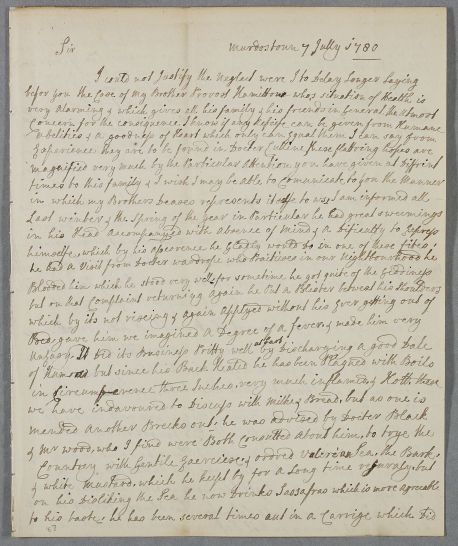 Sir Murdostoun 7 Jully 1780
I could not Justify the neglect were I to Delay Longer Laying
befor you the Case of my Brother Provost Hamilton whos situation of Health is
very alarming & which gives all his family & his friends in General the utmost
Concern for the Consiquence. I know if any Relife can be given from Humane
Abelities & a goodness of Heart which only can Equal them I can say from
Experience they are to be found in Docter Cullen, these flatring hopes are
magnified very much by the Particular Attention you have given at Diffrint
times to this family & I wish I may be able to Comunicate to you the Manner
in which my Brothers Deases represents it self to us, I am informed all
Last winter & the Spring of the year in Particular he had great sweemings
in his Head Accompanyed with absence of mind & a Difficulty to Express
himselfe, which by his Aperence he Gladly would Do in one of these fites,
he had a Visit from Docter wardrope who Praitises in our neighbourhood he
Blooded him which he stood very well, for sometime he got quite of the Geediness
but on that Complaint returning again he Put a Blister betwext his shoulders
which by its not riseing & again Applyed without his Ever getting out of
Bed, gave him we imagined a Degree of a fever & made him very
uneassy. It Did its Business Pritty well at Last by Discharging a good Dale
of Humors but since his Back Healed he has been Plagued with Boils
in Circumference three Inches, very much inflamed & Hott, these
we have indavoured to Discuss with milk & Bread, but as one is
mended Another Brecks out, he was advised by Docter Black
& Mr wood, who I find were Both Consulted about him, to trye the
Countrey with Gentile Exerciese, & ordred Valerian Tea, the Bark,
& white Mustard, which he keept by for a Long time regularly, but
on his Disliking the Tea he now Drinks Sassafras which is more agreeable
to his taste, he has been several times out in a Carrige which Did